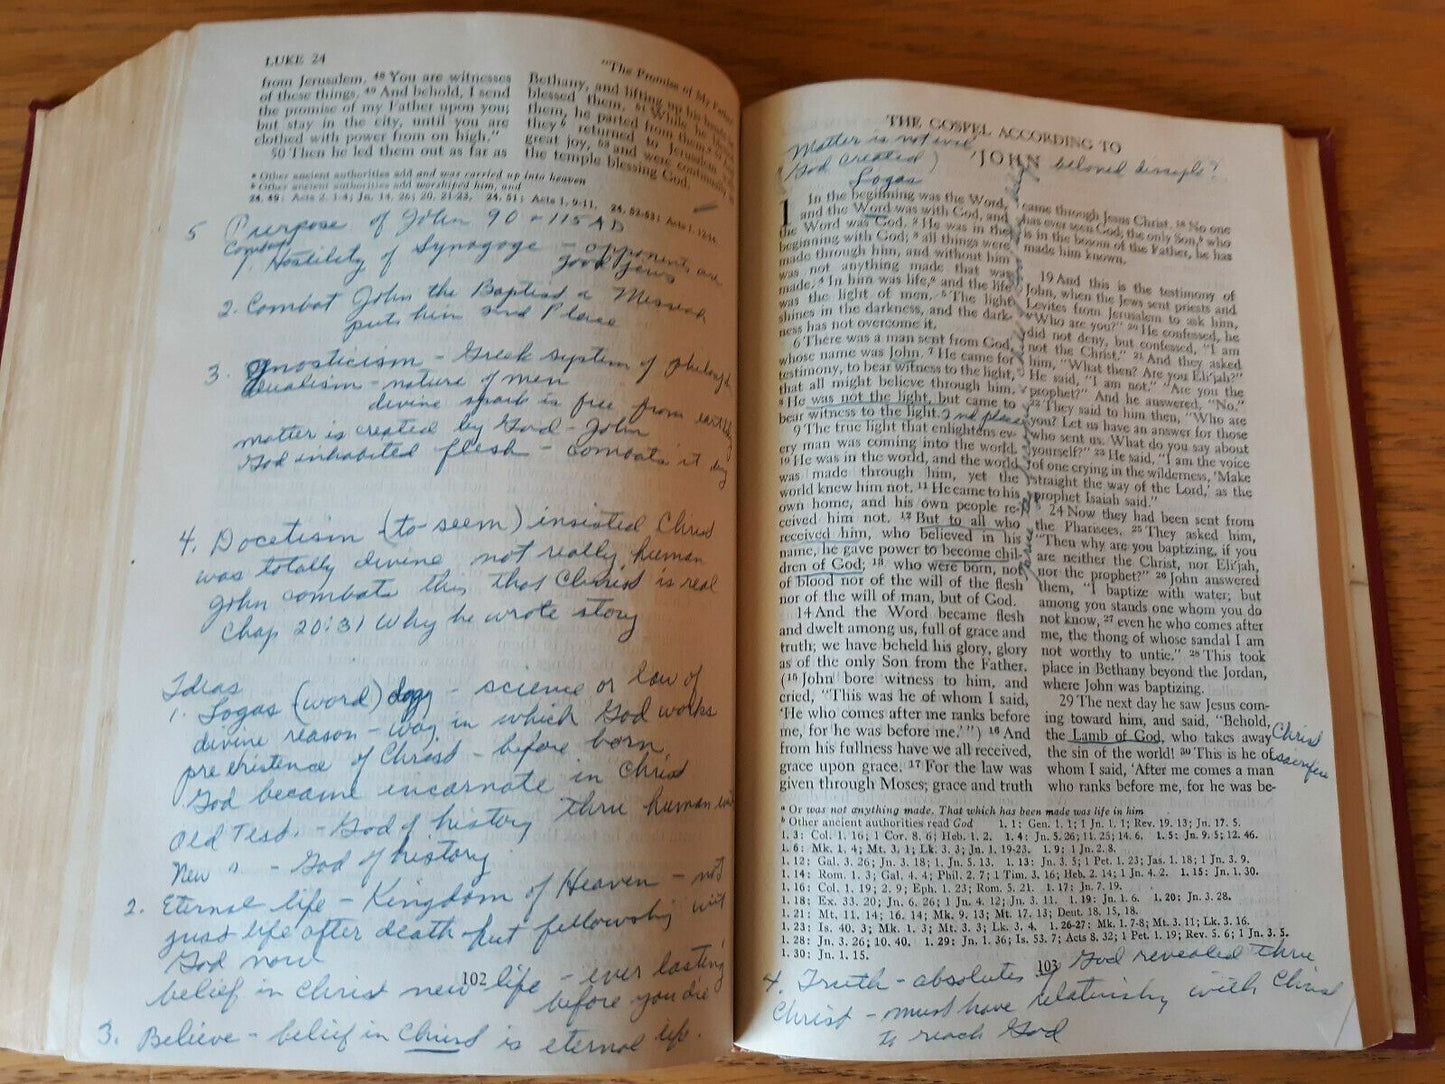 LUKE 24
"The Promise of My Father
from Jerusalem. 48 You are witnesses
of these things. 49 And behold, I send
the promise of my Father upon you;
but stay in the city, until you are
clothed with power from on high."
50 Then he led them out as far as
Bethany, and lifting up his hands
blessed them. 51 While he blessed
them, he parted from them.
they returned to Jerusalem
great joy, 53 and were continually
the temple blessing God.
a Other ancient authorities add and was carried up into heaven
b Other ancient authorities add worshiped him, and
24. 49: Acts 2. 1-4; Jn. 14. 26; 20. 21-23. 24. 51: Acts 1. 9-11. 24. 52-53: Acts 1. 12-14.
5 Purpose of John 90 - 115 AD
Combat
1. Hostility of Synagoge - opponents are
good Jews
2. Combat John the Baptist a Messiah
puts him 2nd Place
3. gnosticism - Greek system of
dualism - nature of men
divine spark is free from
matter is created by God - John
God inhabited flesh - combats it
4. Docetism (to seem) insisted Christ
was totally divine not really human
John combats this that Christ is real
Chap 20:31 Why he wrote story
Ideas
1. Logas (word) - science or law of
divine reason - way in which God works
preexistence of Christ - before born
God became incarnate in Christ
Old Test. - God of history thru human
New " - God of history
2. Eternal life - Kingdom of Heaven - not
just life after death but fellowship with
God now
belief in Christ new life - ever lasting
before you die
102
3. Believe - belief in Christ is eternal life.
THE GOSPEL ACCORDING TO
JOHN
Matter is not evil
(God created)
Logas
beloved disciple?
1 In the beginning was the Word,
and the Word was with God, and
the Word was God. 2 He was in the
beginning with God; 3 all things were
made through him, and without him
was not anything made that was
made. 4 In him was life, a and the life
was the light of men. 5 The light
shines in the darkness, and the dark-
ness has not overcome it.
6 There was a man sent from God,
whose name was John. 7 He came for
testimony, to bear witness to the light,
that all might believe through him.
8 He was not the light, but came to
bear witness to the light. 2nd place
9 The true light that enlightens ev-
ery man was coming into the world.
10 He was in the world, and the world
was made through him, yet the
world knew him not. 11 He came to his
own home, and his own people re-
ceived him not. 12 But to all who
received him, who believed in his
name, he gave power to become chil-
dren of God; 13 who were born, not
of blood nor of the will of the flesh
nor of the will of man, but of God.
14 And the Word became flesh
and dwelt among us, full of grace and
truth; we have beheld his glory, glory
as of the only Son from the Father.
(15 John bore witness to him, and
cried, "This was he of whom I said,
'He who comes after me ranks before
me, for he was before me.'") 16 And
from his fullness have we all received,
grace upon grace. 17 For the law was
given through Moses; grace and truth
came through Jesus Christ. 18 No one
has ever seen God; the only Son, b who
is in the bosom of the Father, he has
made him known.
19 And this is the testimony of
John, when the Jews sent priests and
Levites from Jerusalem to ask him,
"Who are you?" 20 He confessed, he
did not deny, but confessed, "I am
not the Christ." 21 And they asked
him, "What then? Are you Eli'jah?"
He said, "I am not." "Are you the
prophet?" And he answered, "No."
22 They said to him then, "Who are
you? Let us have an answer for those
who sent us. What do you say about
yourself?" 23 He said, "I am the voice
of one crying in the wilderness, 'Make
straight the way of the Lord,' as the
prophet Isaiah said."
24 Now they had been sent from
the Pharisees. 25 They asked him,
"Then why are you baptizing, if you
are neither the Christ, nor Eli'jah,
nor the prophet?" 26 John answered
them, "I baptize with water; but
among you stands one whom you do
not know, 27 even he who comes after
me, the thong of whose sandal I am
not worthy to untie." 28 This took
place in Bethany beyond the Jordan,
where John was baptizing.
29 The next day he saw Jesus com-
ing toward him, and said, "Behold,
the Lamb of God, who takes away
the sin of the world! 30 This is he of
whom I said, 'After me comes a man
who ranks before me, for he was be-
Christ
a Or was not anything made. That which has been made was life in him
b Other ancient authorities read God 1. 1: Gen. 1. 1; 1 Jn. 1. 1; Rev. 19. 13; Jn. 17. 5.
1. 3: Col. 1. 16; 1 Cor. 8. 6; Heb. 1. 2. 1. 4: Jn. 5. 26; 11. 25; 14. 6. 1. 5: Jn. 9. 5; 12. 46.
1. 6: Mk. 1. 4; Mt. 3. 1; Lk. 3. 3; Jn. 1. 19-23. 1. 9: 1 Jn. 2. 8.
1. 12: Gal. 3. 26; Jn. 3. 18; 1 Jn. 5. 13. 1. 13: Jn. 3. 5; 1 Pet. 1. 23; Jas. 1. 18; 1 Jn. 3. 9.
1. 14: Rom. 1. 3; Gal. 4. 4; Phil. 2. 7; 1 Tim. 3. 16; Heb. 2. 14; 1 Jn. 4. 2. 1. 15: Jn. 1. 30.
1. 16: Col. 1. 19; 2. 9; Eph. 1. 23; Rom. 5. 21. 1. 17: Jn. 7. 19.
1. 18: Ex. 33. 20; Jn. 6. 26; 1 Jn. 4. 12; Jn. 3. 11. 1. 19: Jn. 1. 6. 1. 20: Jn. 3. 28.
1. 21: Mt. 11. 14; 16. 14; Mk. 9. 13; Mt. 17. 13; Deut. 18. 15, 18.
1. 23: Is. 40. 3; Mk. 1. 3; Mt. 3. 3; Lk. 3. 4. 1. 26-27: Mk. 1. 7-8; Mt. 3. 11; Lk. 3. 16.
1. 28: Jn. 3. 26; 10. 40. 1. 29: Jn. 1. 36; Is. 53. 7; Acts 8. 32; 1 Pet. 1. 19; Rev. 5. 6; 1 Jn. 3. 5.
1. 30: Jn. 1. 15.
103
4. Truth - absolutes God revealed thru
Christ - must have relatinship with Christ
to reach God